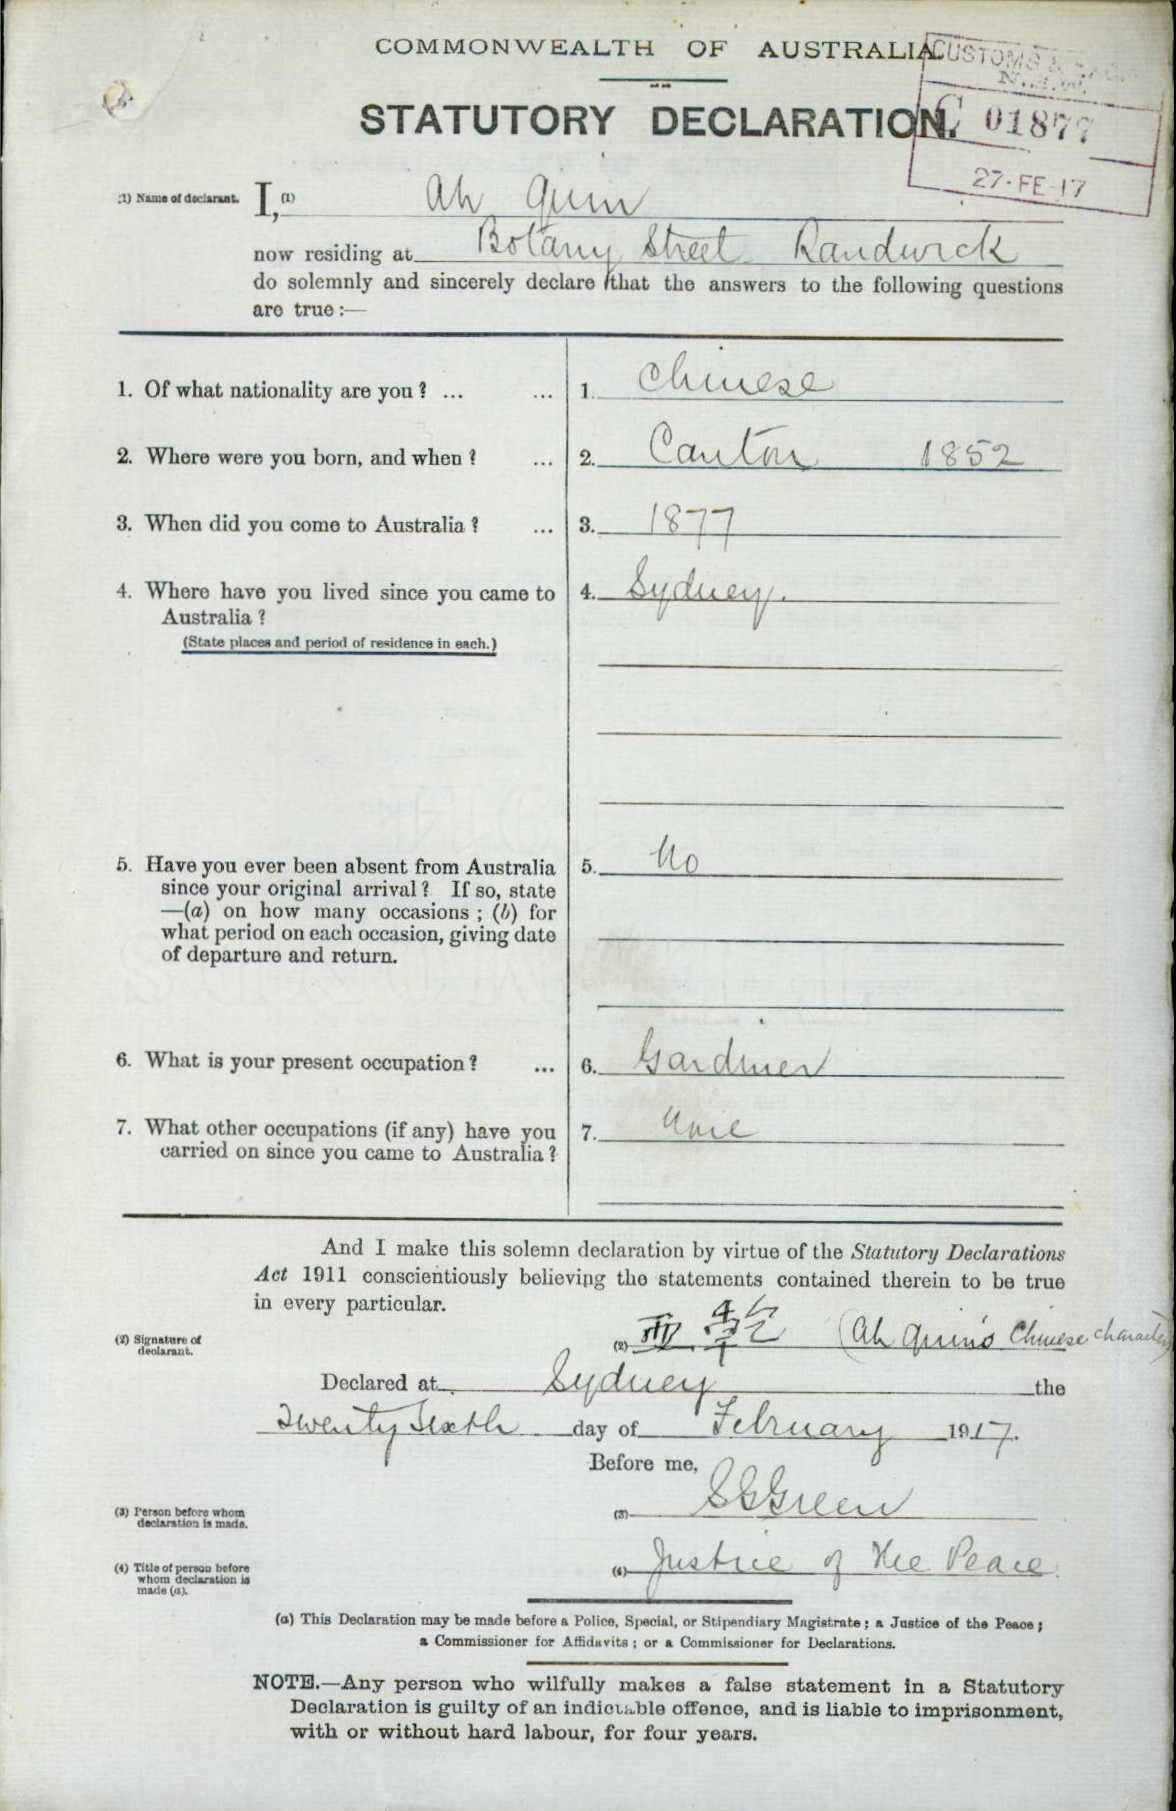 COMMONWEALTH OF AUSTRALIA.
CUSTOMS &
N.S.W.
STATUTORY DECLARATION.
C 01877
27·FE·17
(1) Name of declarant. I, (1) Ah Quin
now residing at Botany Street Randwick
do solemnly and sincerely declare that the answers to the following questions
are true:—
1. Of what nationality are you? ... ... 1. Chinese
2. Where were you born, and when? ... 2. Canton 1852
3. When did you come to Australia? ... 3. 1877
4. Where have you lived since you came to 4. Sydney.
Australia?
(State places and period of residence in each.)
5. Have you ever been absent from Australia 5. No
since your original arrival? If so, state
—(a) on how many occasions; (b) for
what period on each occasion, giving date
of departure and return.
6. What is your present occupation? ... 6. Gardiner
7. What other occupations (if any) have you 7. None
carried on since you came to Australia?
And I make this solemn declaration by virtue of the Statutory Declarations
Act 1911 conscientiously believing the statements contained therein to be true
in every particular.
(2) Signature of
declarant.
(2) 亚 (Ah Quin's Chinese character)
Declared at Sydney the
Twenty Sixth day of February 1917.
Before me,
(3) Person before whom
declaration is made.
(3) S G Green
(4) Title of person before
whom declaration is
made (a).
(4) Justice of the Peace.
(a) This Declaration may be made before a Police, Special, or Stipendiary Magistrate; a Justice of the Peace;
a Commissioner for Affidavits; or a Commissioner for Declarations.
NOTE.—Any person who wilfully makes a false statement in a Statutory
Declaration is guilty of an indictable offence, and is liable to imprisonment,
with or without hard labour, for four years.